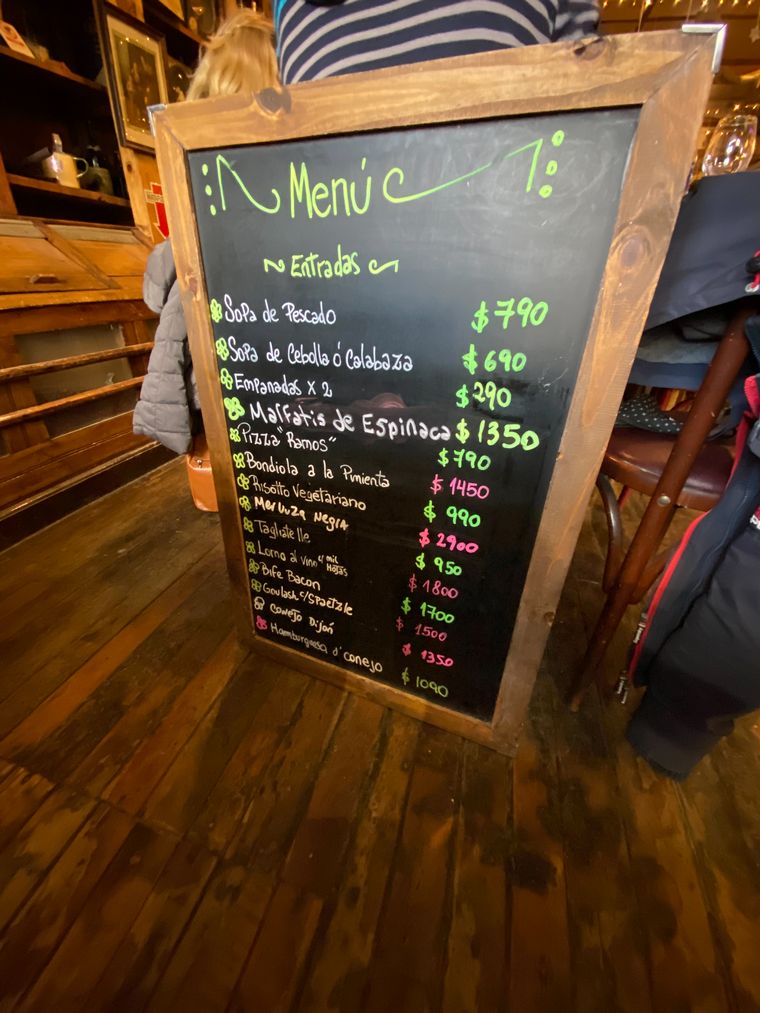 Menú
Entradas
Sopa de Pescado $790
Sopa de Cebolla ó Calabaza $690
Empanadas x 2 $290
Malfatis de Espinaca $1350
Pizza "Ramos" $790
Bondiola a la Pimienta $1450
Risotto Vegetariano $990
Merluza Negra $2900
Tagliatelle $950
Lomo al vino c/ mil Hojas $1800
Bife Bacon $1700
Goulash c/Spaetzle $1500
Conejo Dijón $1350
Hamburguesa d' conejo $1090